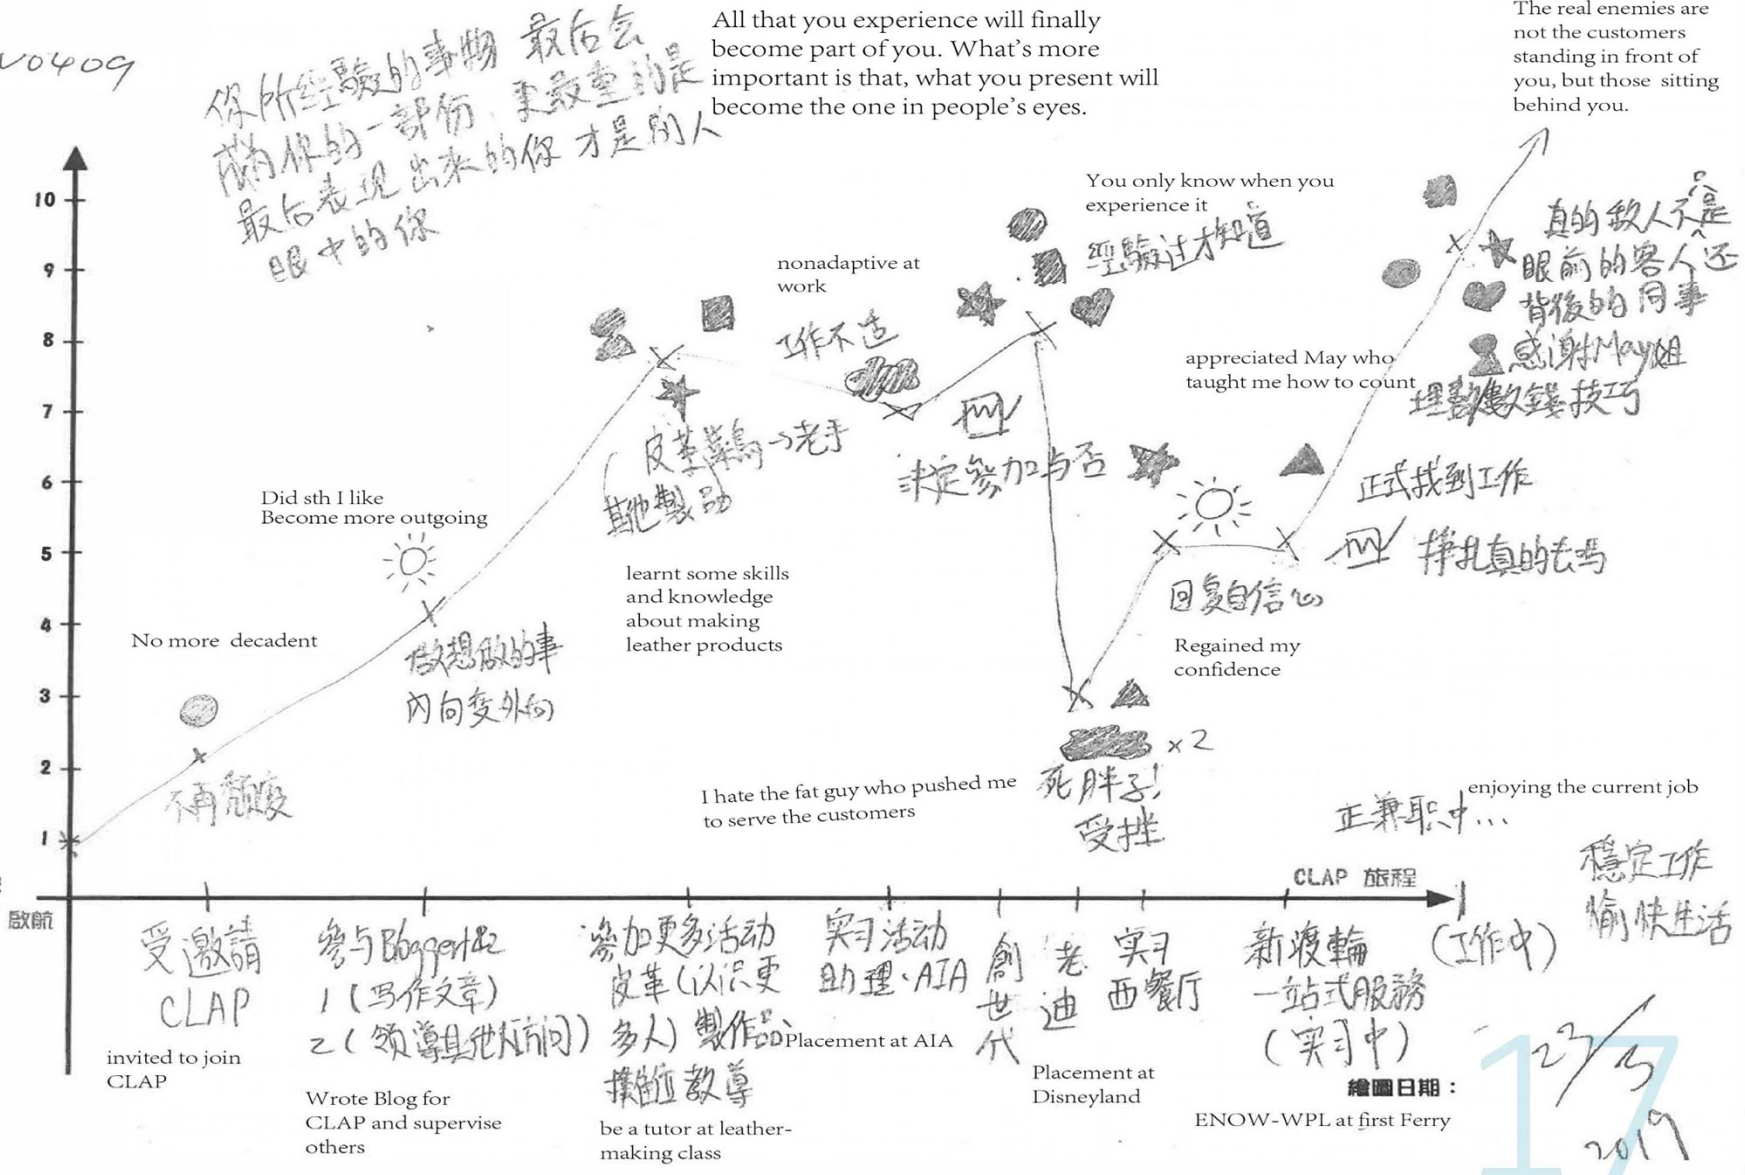 V0409
你所經驗的事物 最后会
成為你的一部份,更最重的是
最后表現出來的你 才是別人
眼中的你
All that you experience will finally
become part of you. What's more
important is that, what you present will
become the one in people's eyes.
The real enemies are
not the customers
standing in front of
you, but those sitting
behind you.
真的敌人不是
眼前的客人还是
背後的同事
感谢May姐
埋數數錢技巧
You only know when you
experience it
經驗过才知道
nonadaptive at
work
工作不适
appreciated May who
taught me how to count
皮革菜鳥→老手
(其他製品)
決定參加与否
正式找到工作
掙扎真的去嗎
Did sth I like
Become more outgoing
learnt some skills
and knowledge
about making
leather products
回复自信心
Regained my
confidence
No more decadent
做想做的事
內向变外向
不再頹廢
x2
I hate the fat guy who pushed me
to serve the customers
死胖子!
受挫
enjoying the current job
正兼职中...
穩定工作
愉快生活
10
9
8
7
6
5
4
3
2
1
CLAP 旅程
啟航
受邀請
CLAP
invited to join
CLAP
參与Blogger1&2
1(写作文章)
2(领導其他人访问)
Wrote Blog for
CLAP and supervise
others
參加更多活动
皮革(认识更
多人)製作品、
擺檔教導
be a tutor at leather-
making class
实习活动
助理、AIA
Placement at AIA
創世代
老迪
Placement at
Disneyland
实习
西餐厅
新渡輪
一站式服務
(实习中)
ENOW-WPL at first Ferry
(工作中)
繪圖日期:
23/3
2019
17